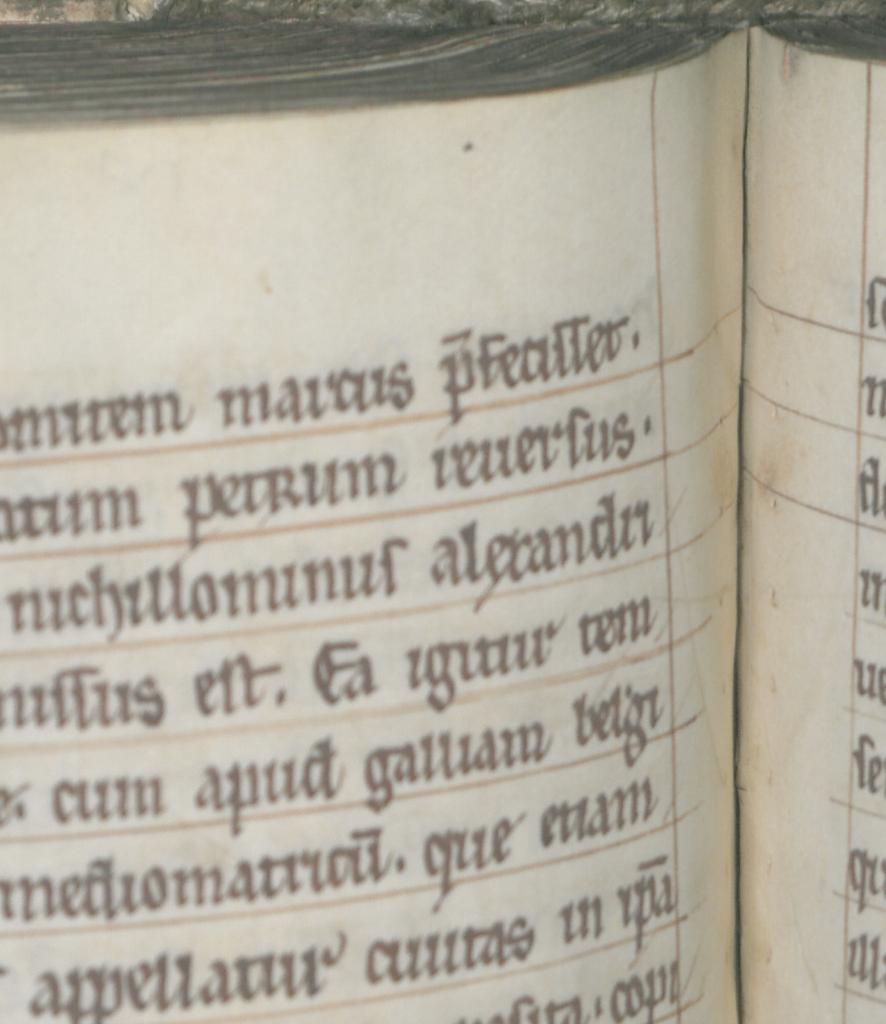 omitem marcus p̄fecisset.
atum petrum reuersus.
nichillominus alexandri
missus est. Ea igitur tem
e. cum apud galliam belgi
mediomatricū. que etiam
appellatur ciuitas in ip̄a
posita. copi